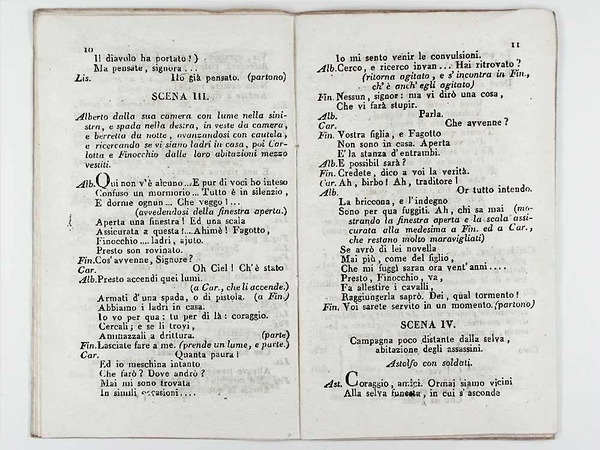 10
Il diavolo ha portato!)
Ma pensate, signora...
Lis. Ho già pensato. (partono)
SCENA III.
Alberto dalla sua camera con lume nella sini-
stra, e spada nella destra, in veste da camera,
e berretta da notte, avanzandosi con cautela,
e ricercando se vi siano ladri in casa, poi Car-
lotta e Finocchio dalle loro abitazioni mezzo
vestiti.
Alb. Qui non v'è alcuno...E pur di voci ho inteso
Confuso un mormorio... Tutto è in silenzio,
E dorme ognun... Che veggo!...
(avvedendosi della finestra aperta.)
Aperta una finestra! Ed una scala
Assicurata a questa!....Ahimè! Fagotto,
Finocchio....ladri, ajuto.
Presto son rovinato.
Fin. Cos'avvenne, Signore?
Car. Oh Ciel! Ch'è stato
Alb. Presto accendi quei lumi.
(a Car., che li accende.)
Armati d'una spada, o di pistola. (a Fin.)
Abbiamo i ladri in casa.
Io vo per qua: tu per di là: coraggio.
Cercali; e se li trovi,
Ammazzali a drittura. (parte)
Fin. Lasciate fare a me. (prende un lume, e parte.)
Car. Quanta paura!
Ed io meschina intanto
Che farò? Dove andrò?
Mai mi sono trovata
In simili occasioni....
11
Io mi sento venir le convulsioni.
Alb. Cerco, e ricerco invan... Hai ritrovato?
(ritorna agitato, e s'incontra in Fin.,
ch'è anch'egli agitato)
Fin. Nessun, signor: ma vi dirò una cosa,
Che vi farà stupir.
Alb. Parla.
Car. Che avvenne?
Fin. Vostra figlia, e Fagotto
Non sono in casa. Aperta
E' la stanza d'entrambi.
Alb. E possibil sarà?
Fin. Credete, dico a voi la verità.
Car. Ah, birbo! Ah, traditore!
Alb. Or tutto intendo.
La briccona, e l'indegno
Sono per qua fuggiti. Ah, chi sa mai (mo-
strando la finestra aperta e la scala assi-
curata alla medesima a Fin. ed a Car.,
che restano molto maravigliati)
Se avrò di lei novella
Mai più, come del figlio,
Che mi fuggì saran ora vent'anni....
Presto, Finocchio, va,
Fa allestire i cavalli,
Raggiungerla saprò. Dei, qual tormento!
Fin. Voi sarete servito in un momento. (partono)
SCENA IV.
Campagna poco distante dalla selva,
abitazione degli assassini.
Astolfo con soldati.
Ast. Coraggio, amici. Ormai siamo vicini
Alla selva funesta, in cui s'asconde